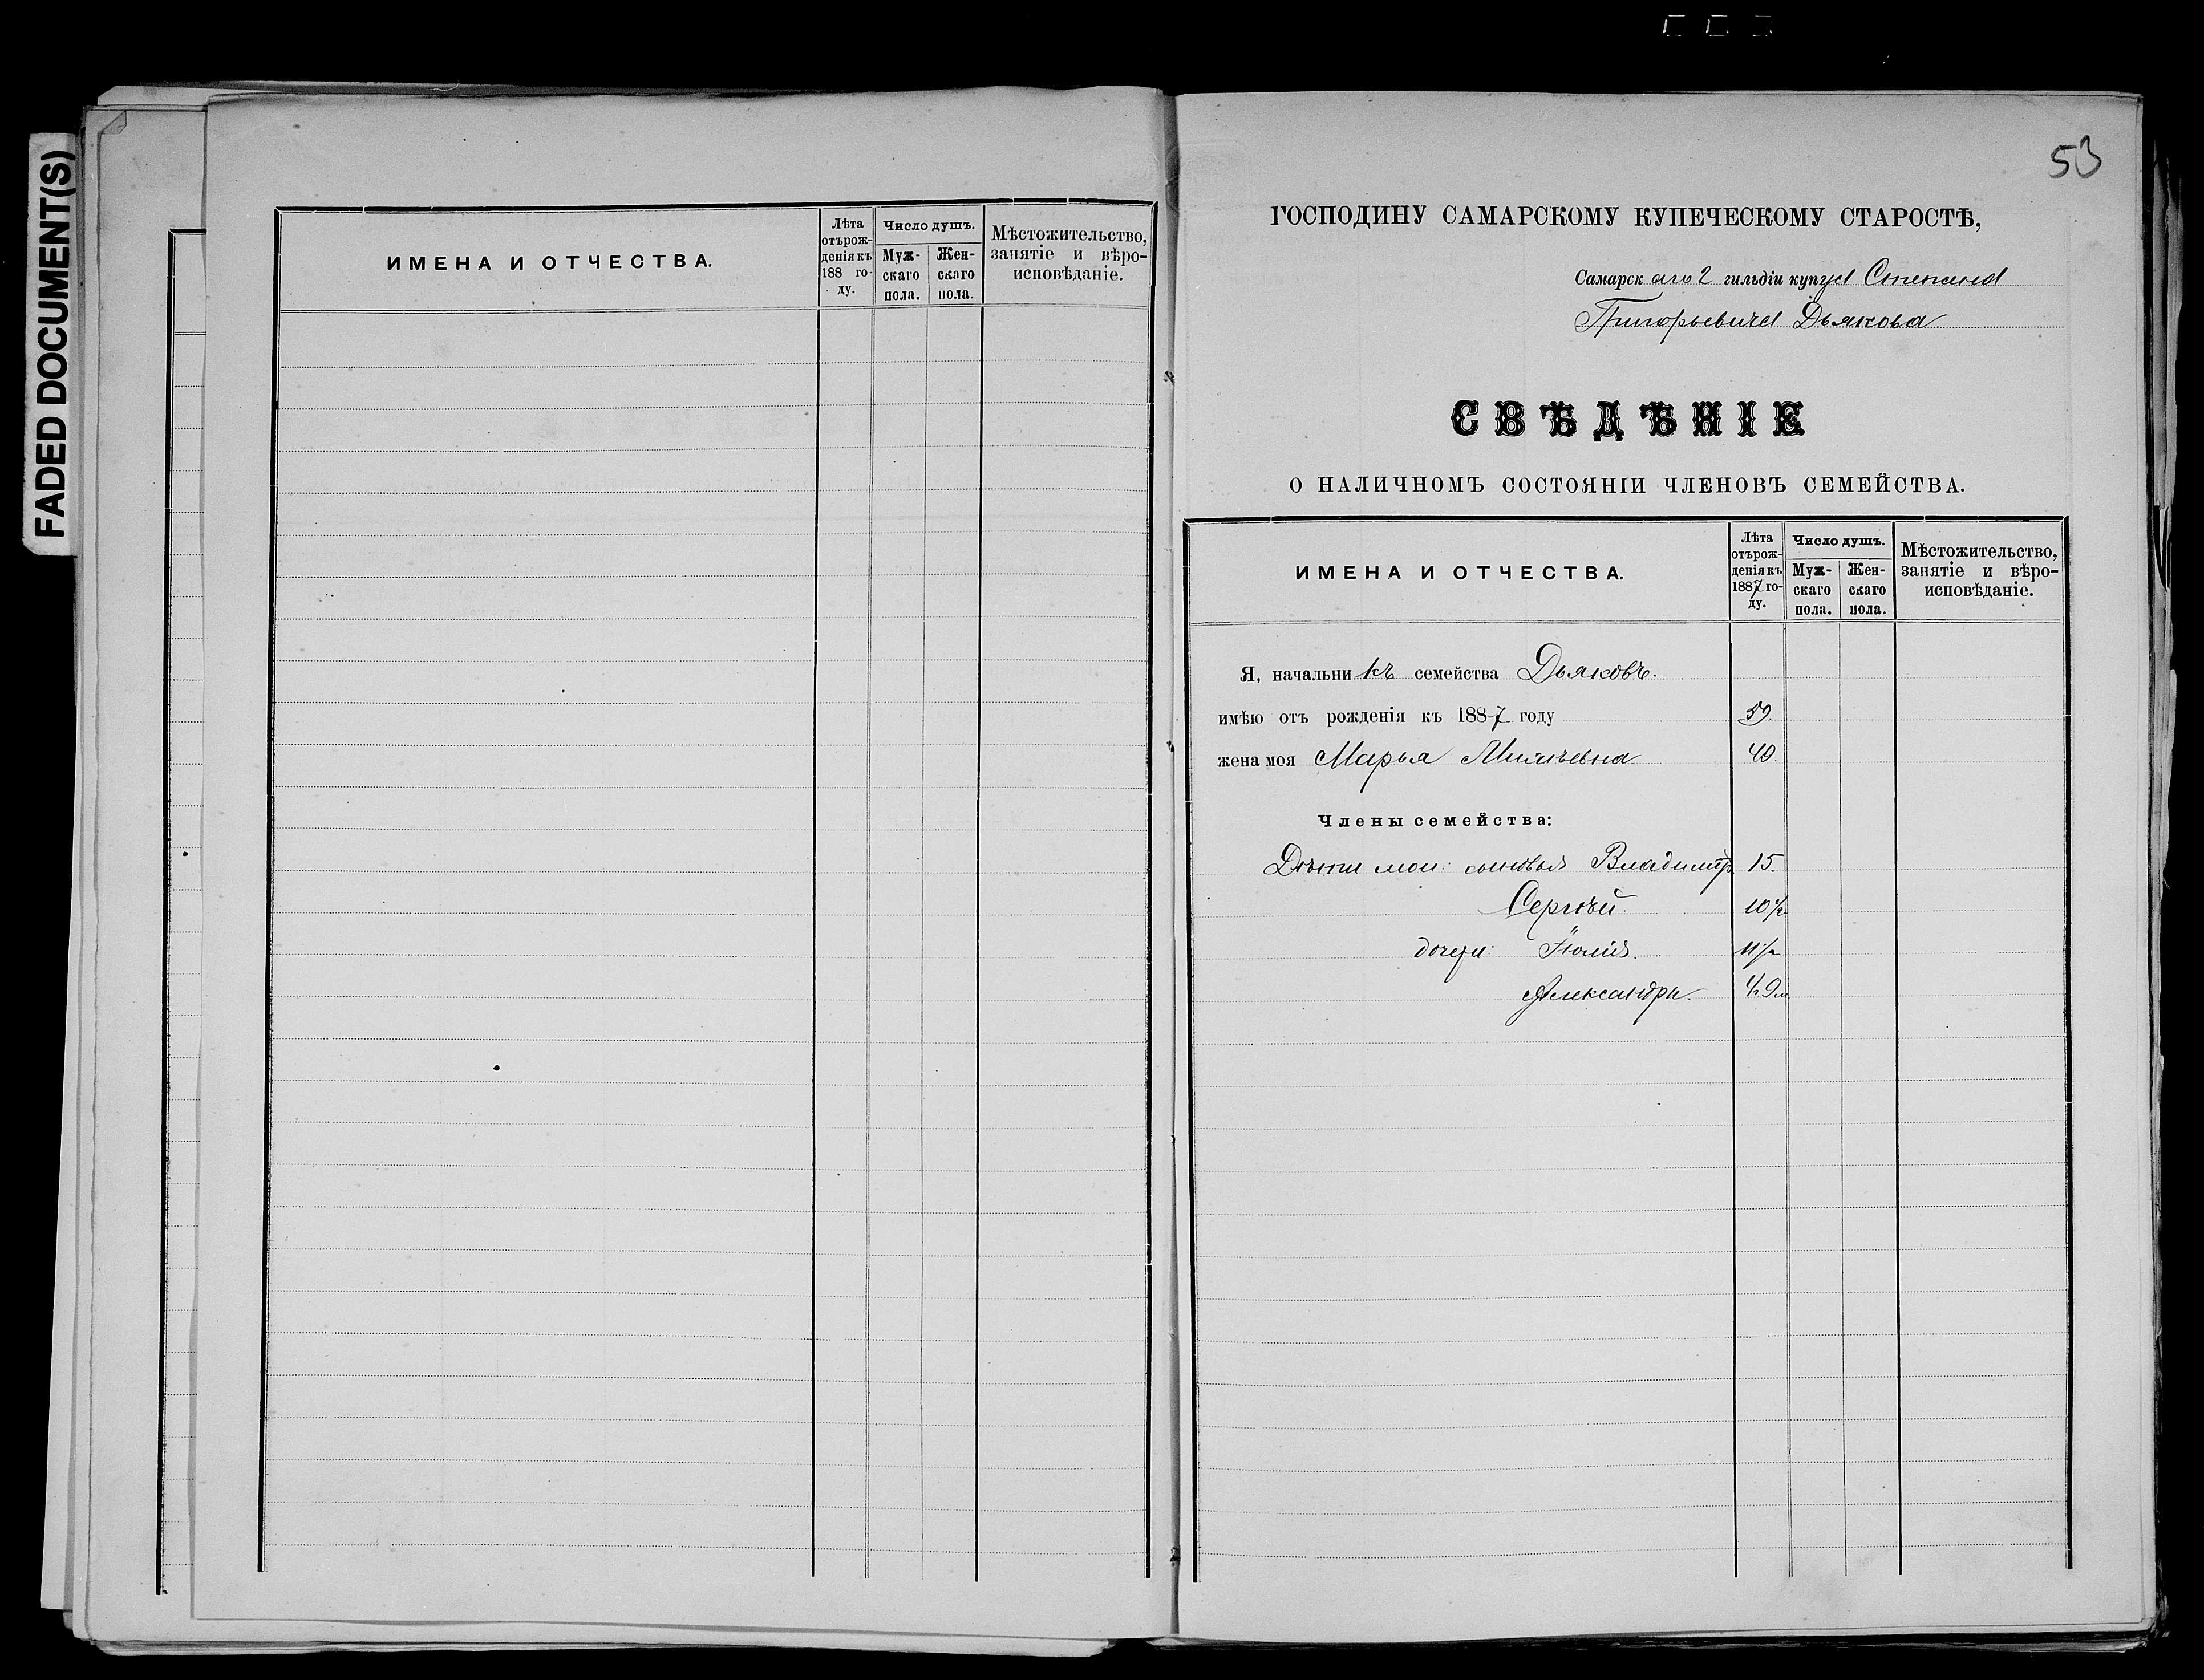 FADED DOCUMENT(S)
ИМЕНА И ОТЧЕСТВА.
Лѣта
отърож-
денія къ
188 го-
ду.
Число душъ.
Муж-
скаго
пола.
Жен-
скаго
пола.
Мѣстожительство,
занятіе и вѣро-
исповѣданіе.
53
ГОСПОДИНУ САМАРСКОМУ КУПЕЧЕСКОМУ СТАРОСТѢ,
Самарскаго 2 гильдіи купца Степана
Григорьевича Дьякова
СВѢДѢНІЕ
О НАЛИЧНОМЪ СОСТОЯНІИ ЧЛЕНОВЪ СЕМЕЙСТВА.
ИМЕНА И ОТЧЕСТВА.
Лѣта
отърож-
денія къ
1887 го-
ду.
Число душъ.
Муж-
скаго
пола.
Жен-
скаго
пола.
Мѣстожительство,
занятіе и вѣро-
исповѣданіе.
Я, начальникъ семейства Дьяковъ.
имѣю отъ рожденія къ 1887 году 59.
жена моя Марья 40.
Члены семейства:
Дѣти мои: сыновья Владиміръ 15.
Сергѣй. 10½
дочери: Юлія. 11½
Александра.